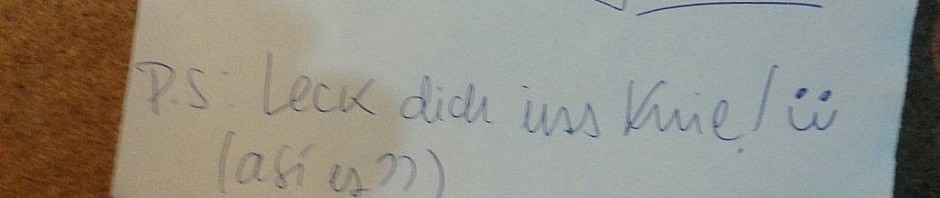 P.S: Leck dich ins Knie! ü
(así es??)